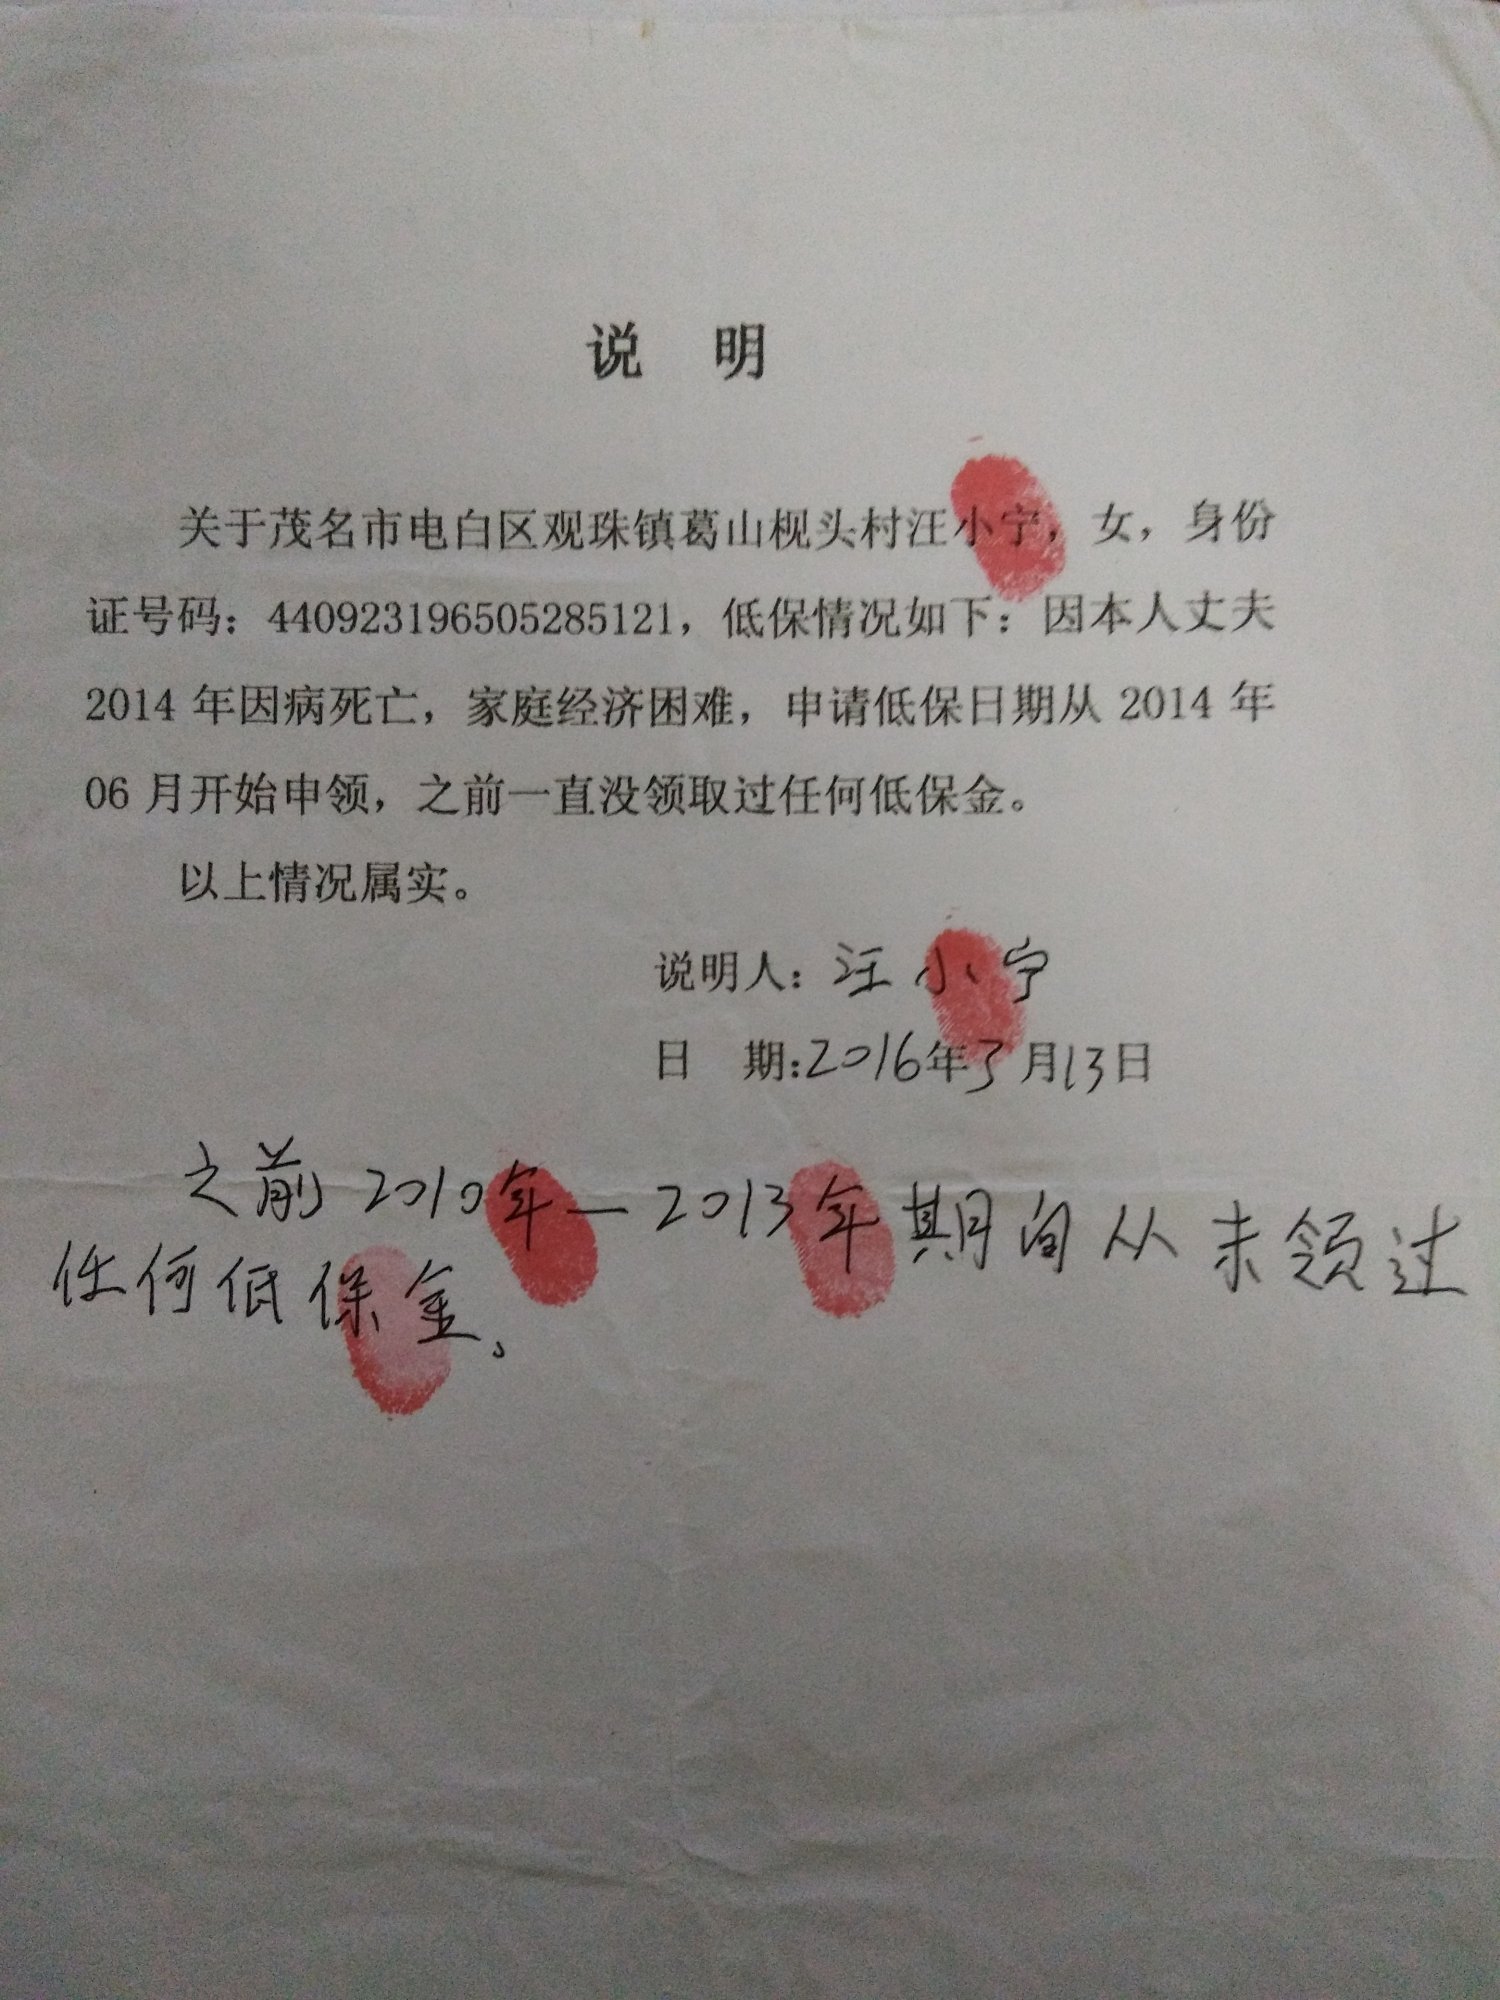 说 明
关于茂名市电白区观珠镇葛山枧头村汪小宁，女，身份
证号码：440923196505285121，低保情况如下：因本人丈夫
2014 年因病死亡，家庭经济困难，申请低保日期从 2014 年
06 月开始申领，之前一直没领取过任何低保金。
以上情况属实。
说明人：汪小宁
日 期:2016年3月13日
之前2010年—2013年期间从未领过
任何低保金。